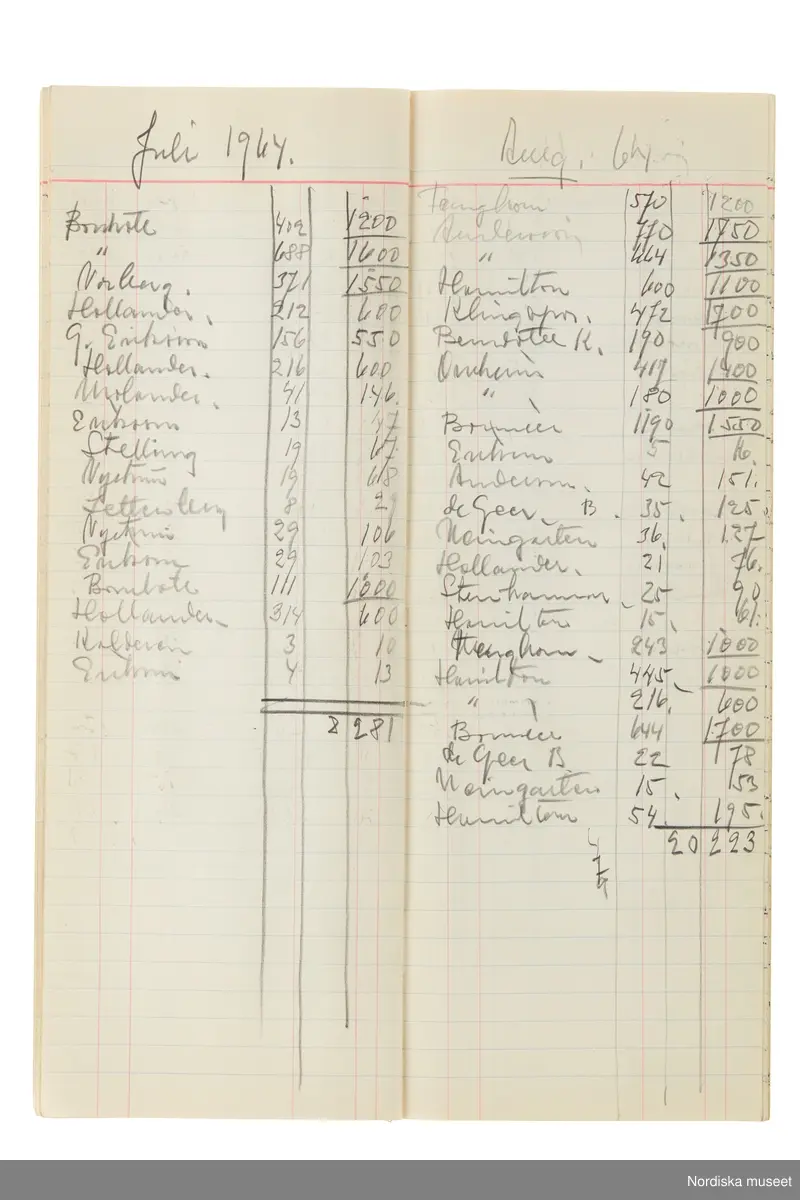 Juli 1964.
Bonhote 402 1200
" 688 1600
Norberg. 371 1550
Hollander. 212 600
G. Erikson 156 550
Hollander. 216 600
Molander. 41 146.
Erikson 13 47
Stelling 19 67
Nyström 19 68
Zetterberg 8 29
Nyström 29 106
Erikson 29 103
Bonhote 111 1000
Hollander 314 600
3 10
Erikson 4 13
8 281
Aug.
570 1200
Anderson 770 1750
" 464 1350
Hamilton 600 1100
Klingspor. 472 1700
K. 190 900
419 1400
" 180 1000
Bonnier 1190 1550
Erikson 5 16.
Anderson. 42 151.
de Geer B. 35. 125.
Weingarten 36. 127
Hollander. 21 76.
Stenhammar 25 90
Hamilton 15. 61.
243 1000
Hamilton 445. 1000
" 216. 600
Bonnier 644 1700
de Geer B. 22 78
Weingarten 15. 153
Hamilton 54. 195.
20 223
Nordiska museet